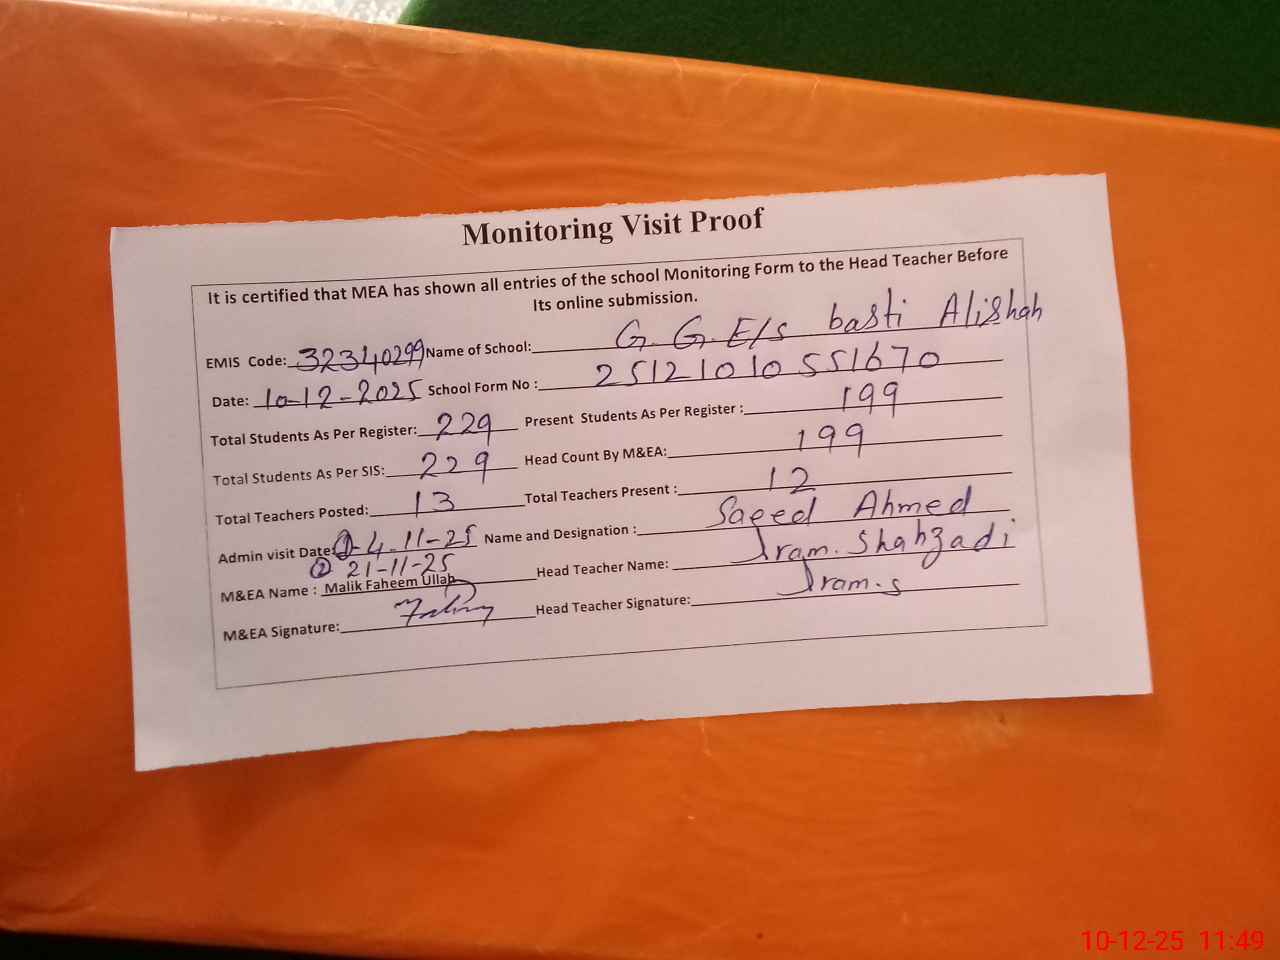 Monitoring Visit Proof
It is certified that MEA has shown all entries of the school Monitoring Form to the Head Teacher Before
Its online submission.
EMIS Code: 32340299 Name of School: G. G. E/S basti Alishah
Date: 10-12-2025 School Form No : 25121010551670
Total Students As Per Register: 229 Present Students As Per Register : 199
Total Students As Per SIS: 229 Head Count By M&EA: 199
Total Teachers Posted: 13 Total Teachers Present : 12
Admin visit Date: ① 4-11-25 Name and Designation : Saeed Ahmed
② 21-11-25
M&EA Name : Malik Faheem Ullah Head Teacher Name: Iram. Shahzadi
M&EA Signature: Head Teacher Signature: Iram.s
10-12-25 11:49